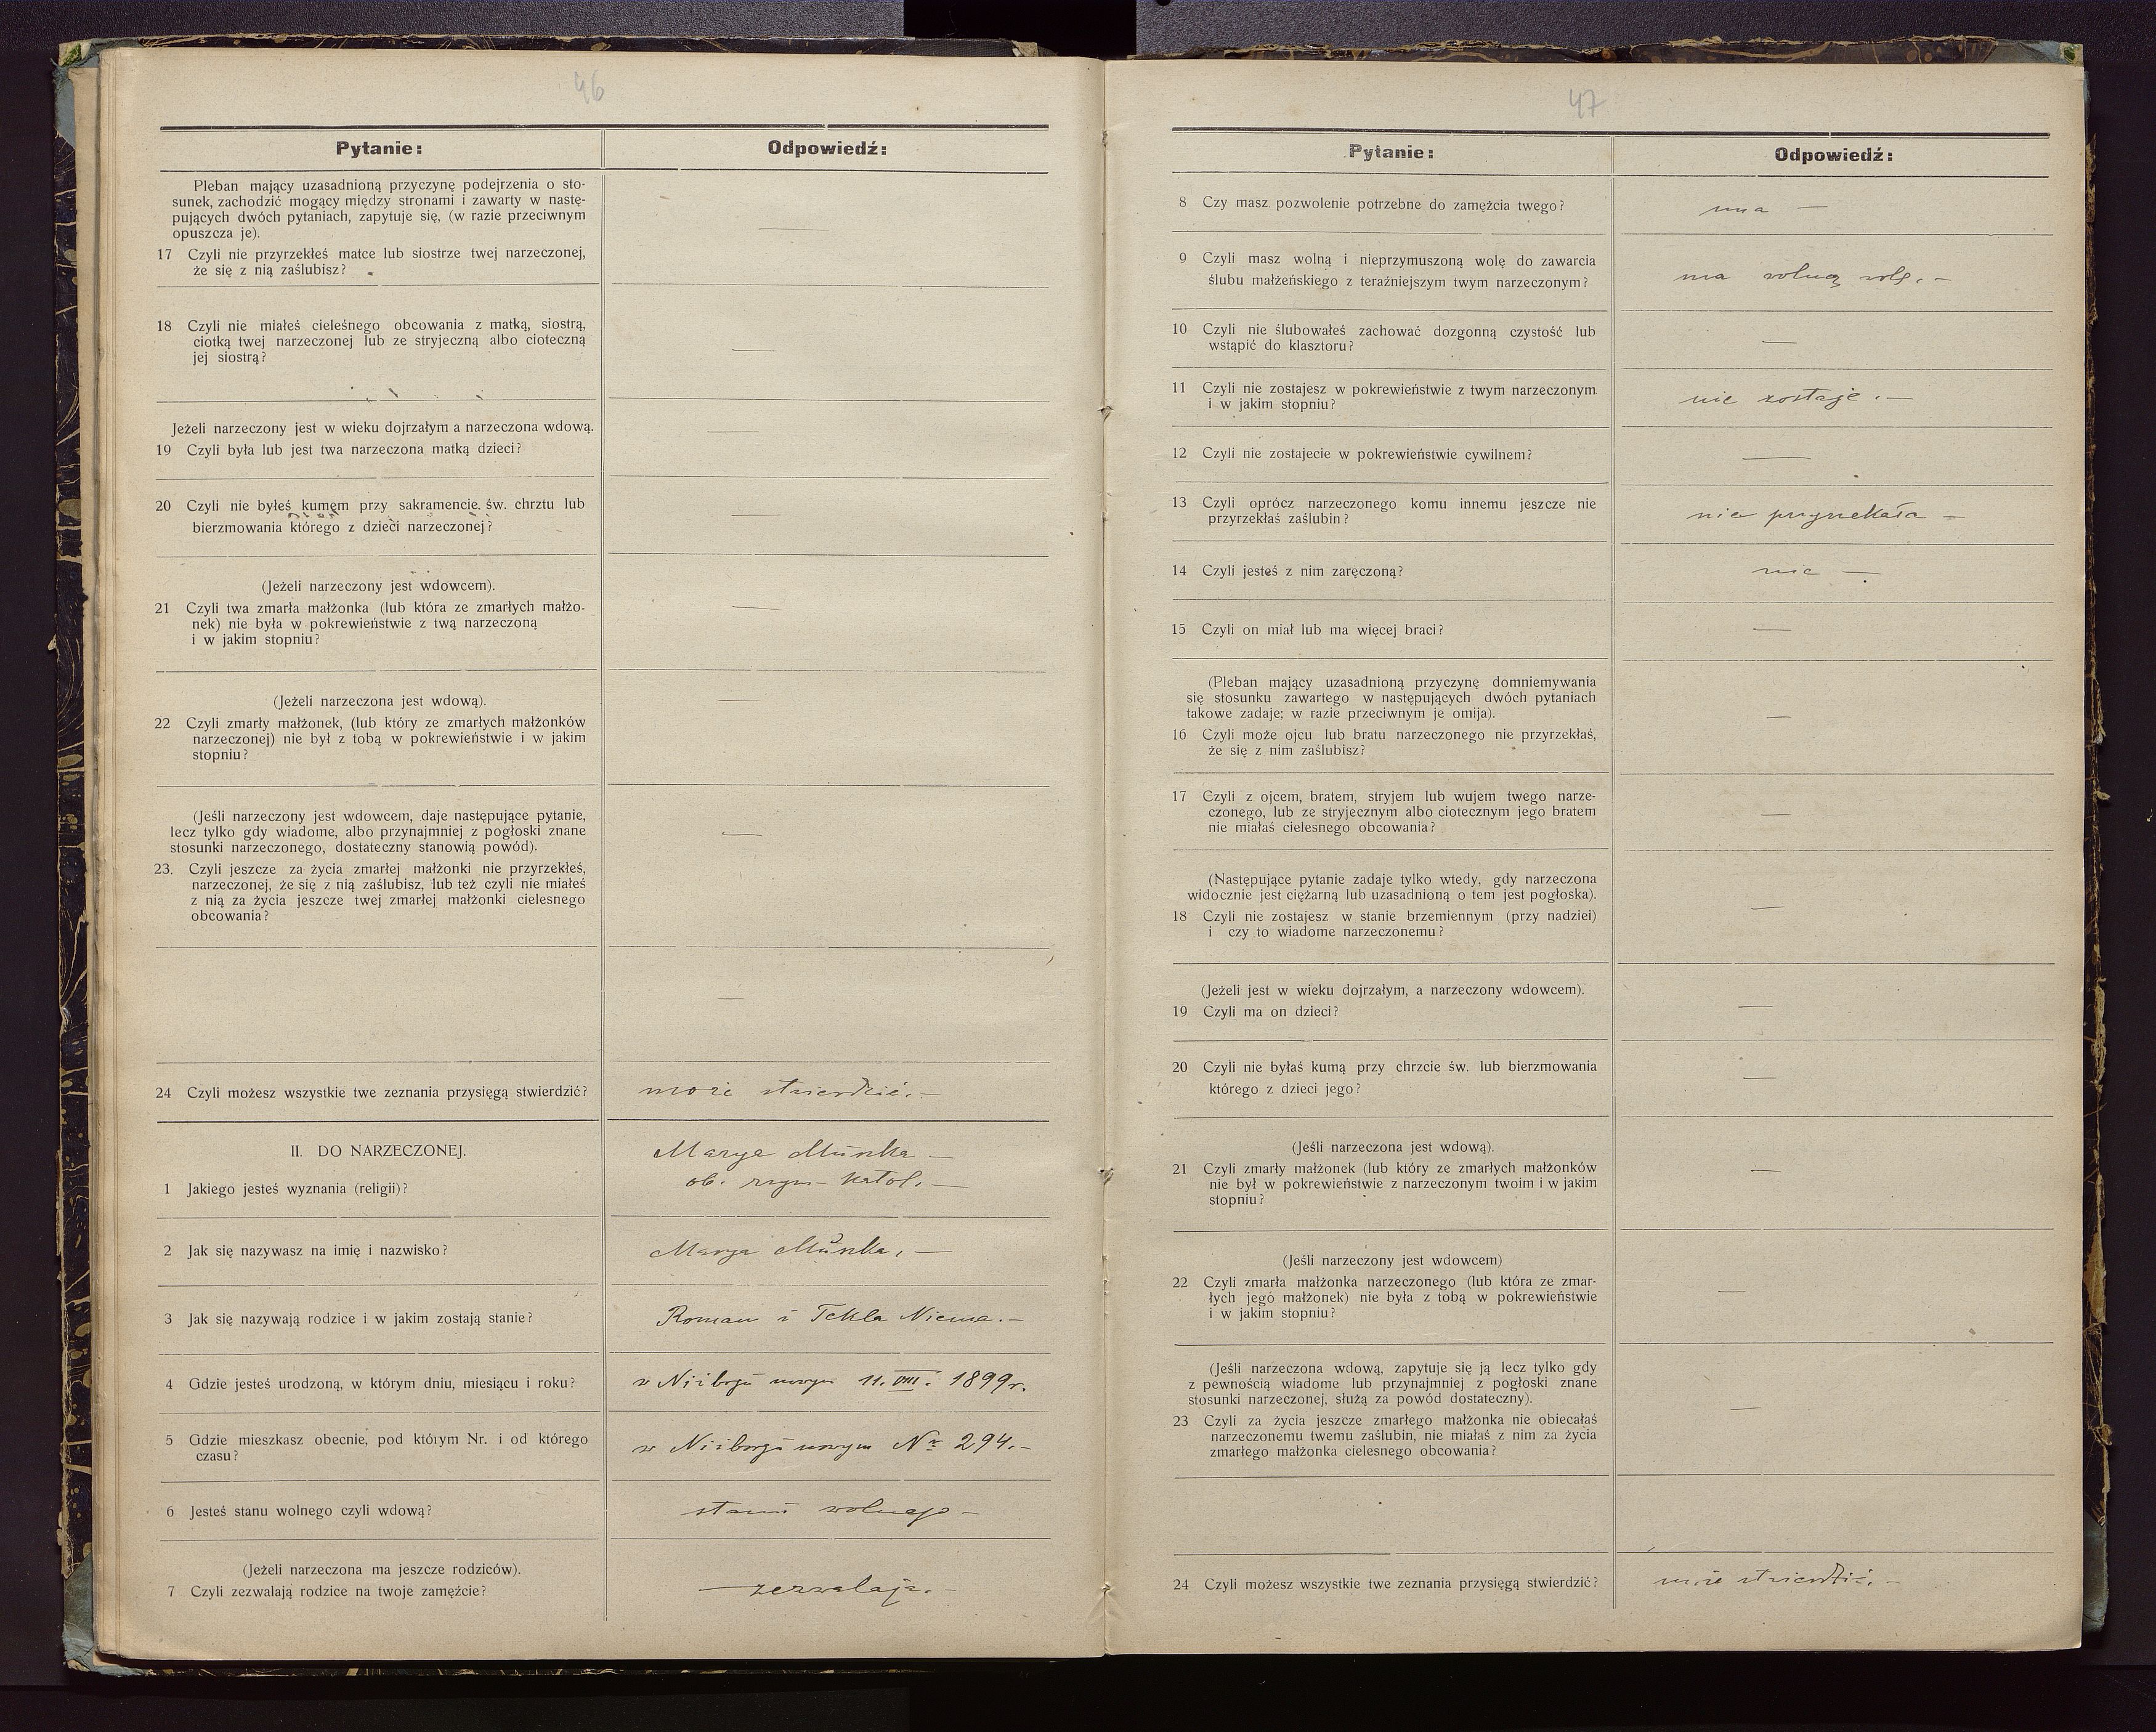 46
Pytanie:
Odpowiedź:
Pleban mający uzasadnioną przyczynę podejrzenia o sto-
sunek, zachodzić mogący między stronami i zawarty w nastę-
pujących dwóch pytaniach, zapytuje się, (w razie przeciwnym
opuszcza je).
—
17 Czyli nie przyrzekłeś matce lub siostrze twej narzeczonej,
że się z nią zaślubisz?
18 Czyli nie miałeś cieleśnego obcowania z matką, siostrą,
ciotką twej narzeczonej lub ze stryjeczną albo cioteczną
jej siostrą?
—
Jeżeli narzeczony jest w wieku dojrzałym a narzeczona wdową.
19 Czyli była lub jest twa narzeczona matką dzieci?
—
20 Czyli nie byłeś kumem przy sakramencie św. chrztu lub
bierzmowania którego z dzieci narzeczonej?
—
(Jeżeli narzeczony jest wdowcem).
21 Czyli twa zmarła małżonka (lub która ze zmarłych małżo-
nek) nie była w pokrewieństwie z twą narzeczoną
i w jakim stopniu?
—
(Jeżeli narzeczona jest wdową).
22 Czyli zmarły małżonek, (lub który ze zmarłych małżonków
narzeczonej) nie był z tobą w pokrewieństwie i w jakim
stopniu?
—
(Jeśli narzeczony jest wdowcem, daje następujące pytanie,
lecz tylko gdy wiadome, albo przynajmniej z pogłoski znane
stosunki narzeczonego, dostateczny stanowią powód).
23. Czyli jeszcze za życia zmarłej małżonki nie przyrzekłeś,
narzeczonej, że się z nią zaślubisz, lub też czyli nie miałeś
z nią za życia jeszcze twej zmarłej małżonki cielesnego
obcowania?
—
—
24 Czyli możesz wszystkie twe zeznania przysięgą stwierdzić?
może stwierdzić. —
II. DO NARZECZONEJ.
1 Jakiego jesteś wyznania (religii)?
Marya —
ob. rzym- katol. —
2 Jak się nazywasz na imię i nazwisko?
Marya —
3 Jak się nazywają rodzice i w jakim zostają stanie?
Roman i Tekla —
4 Gdzie jesteś urodzoną, w którym dniu, miesiącu i roku?
w 11. VIII. 1899r.
5 Gdzie mieszkasz obecnie, pod którym Nr. i od którego
czasu?
w nowym Nr 294. —
6 Jesteś stanu wolnego czyli wdową?
stanu wolnego —
(Jeżeli narzeczona ma jeszcze rodziców).
7 Czyli zezwalają rodzice na twoje zamęźcie?
— zezwalają. —
47
Pytanie:
Odpowiedź:
8 Czy masz pozwolenie potrzebne do zamężcia twego?
ma —
9 Czyli masz wolną i nieprzymuszoną wolę do zawarcia
ślubu małżeńskiego z teraźniejszym twym narzeczonym?
ma wolną wolę. —
10 Czyli nie ślubowałeś zachować dozgonną czystość lub
wstąpić do klasztoru?
—
11 Czyli nie zostajesz w pokrewieństwie z twym narzeczonym
i w jakim stopniu?
nie zostaje. —
12 Czyli nie zostajecie w pokrewieństwie cywilnem?
—
13 Czyli oprócz narzeczonego komu innemu jeszcze nie
przyrzekłaś zaślubin?
nie przyrzekała —
14 Czyli jesteś z nim zaręczoną?
nie —
15 Czyli on miał lub ma więcej braci?
—
(Pleban mający uzasadnioną przyczynę domniemywania
się stosunku zawartego w następujących dwóch pytaniach
takowe zadaje; w razie przeciwnym je omija).
16 Czyli może ojcu lub bratu narzeczonego nie przyrzekłaś,
że się z nim zaślubisz?
—
17 Czyli z ojcem, bratem, stryjem lub wujem twego narze-
czonego, lub ze stryjecznym albo ciotecznym jego bratem
nie miałaś cielesnego obcowania?
—
(Następujące pytanie zadaje tylko wtedy, gdy narzeczona
widocznie jest ciężarną lub uzasadnioną o tem jest pogłoska).
18 Czyli nie zostajesz w stanie brzemiennym (przy nadziei)
i czy to wiadome narzeczonemu?
—
(Jeżeli jest w wieku dojrzałym, a narzeczony wdowcem).
19 Czyli ma on dzieci?
—
20 Czyli nie byłaś kumą przy chrzcie św. lub bierzmowania
którego z dzieci jego?
—
(Jeśli narzeczona jest wdową).
21 Czyli zmarły małżonek (lub który ze zmarłych małżonków
nie był w pokrewieństwie z narzeczonym twoim i w jakim
stopniu?
—
(Jeśli narzeczony jest wdowcem)
22 Czyli zmarła małżonka narzeczonego (lub która ze zmar-
łych jego małżonek) nie była z tobą w pokrewieństwie
i w jakim stopniu?
—
(Jeśli narzeczona wdową, zapytuje się ją lecz tylko gdy
z pewnością wiadome lub przynajmniej z pogłoski znane
stosunki narzeczonej, służą za powód dostateczny).
23 Czyli za życia jeszcze zmarłego małżonka nie obiecałaś
narzeczonemu twemu zaślubin, nie miałaś z nim za życia
zmarłego małżonka cielesnego obcowania?
—
24 Czyli możesz wszystkie twe zeznania przysięgą stwierdzić?
może stwierdzić. —